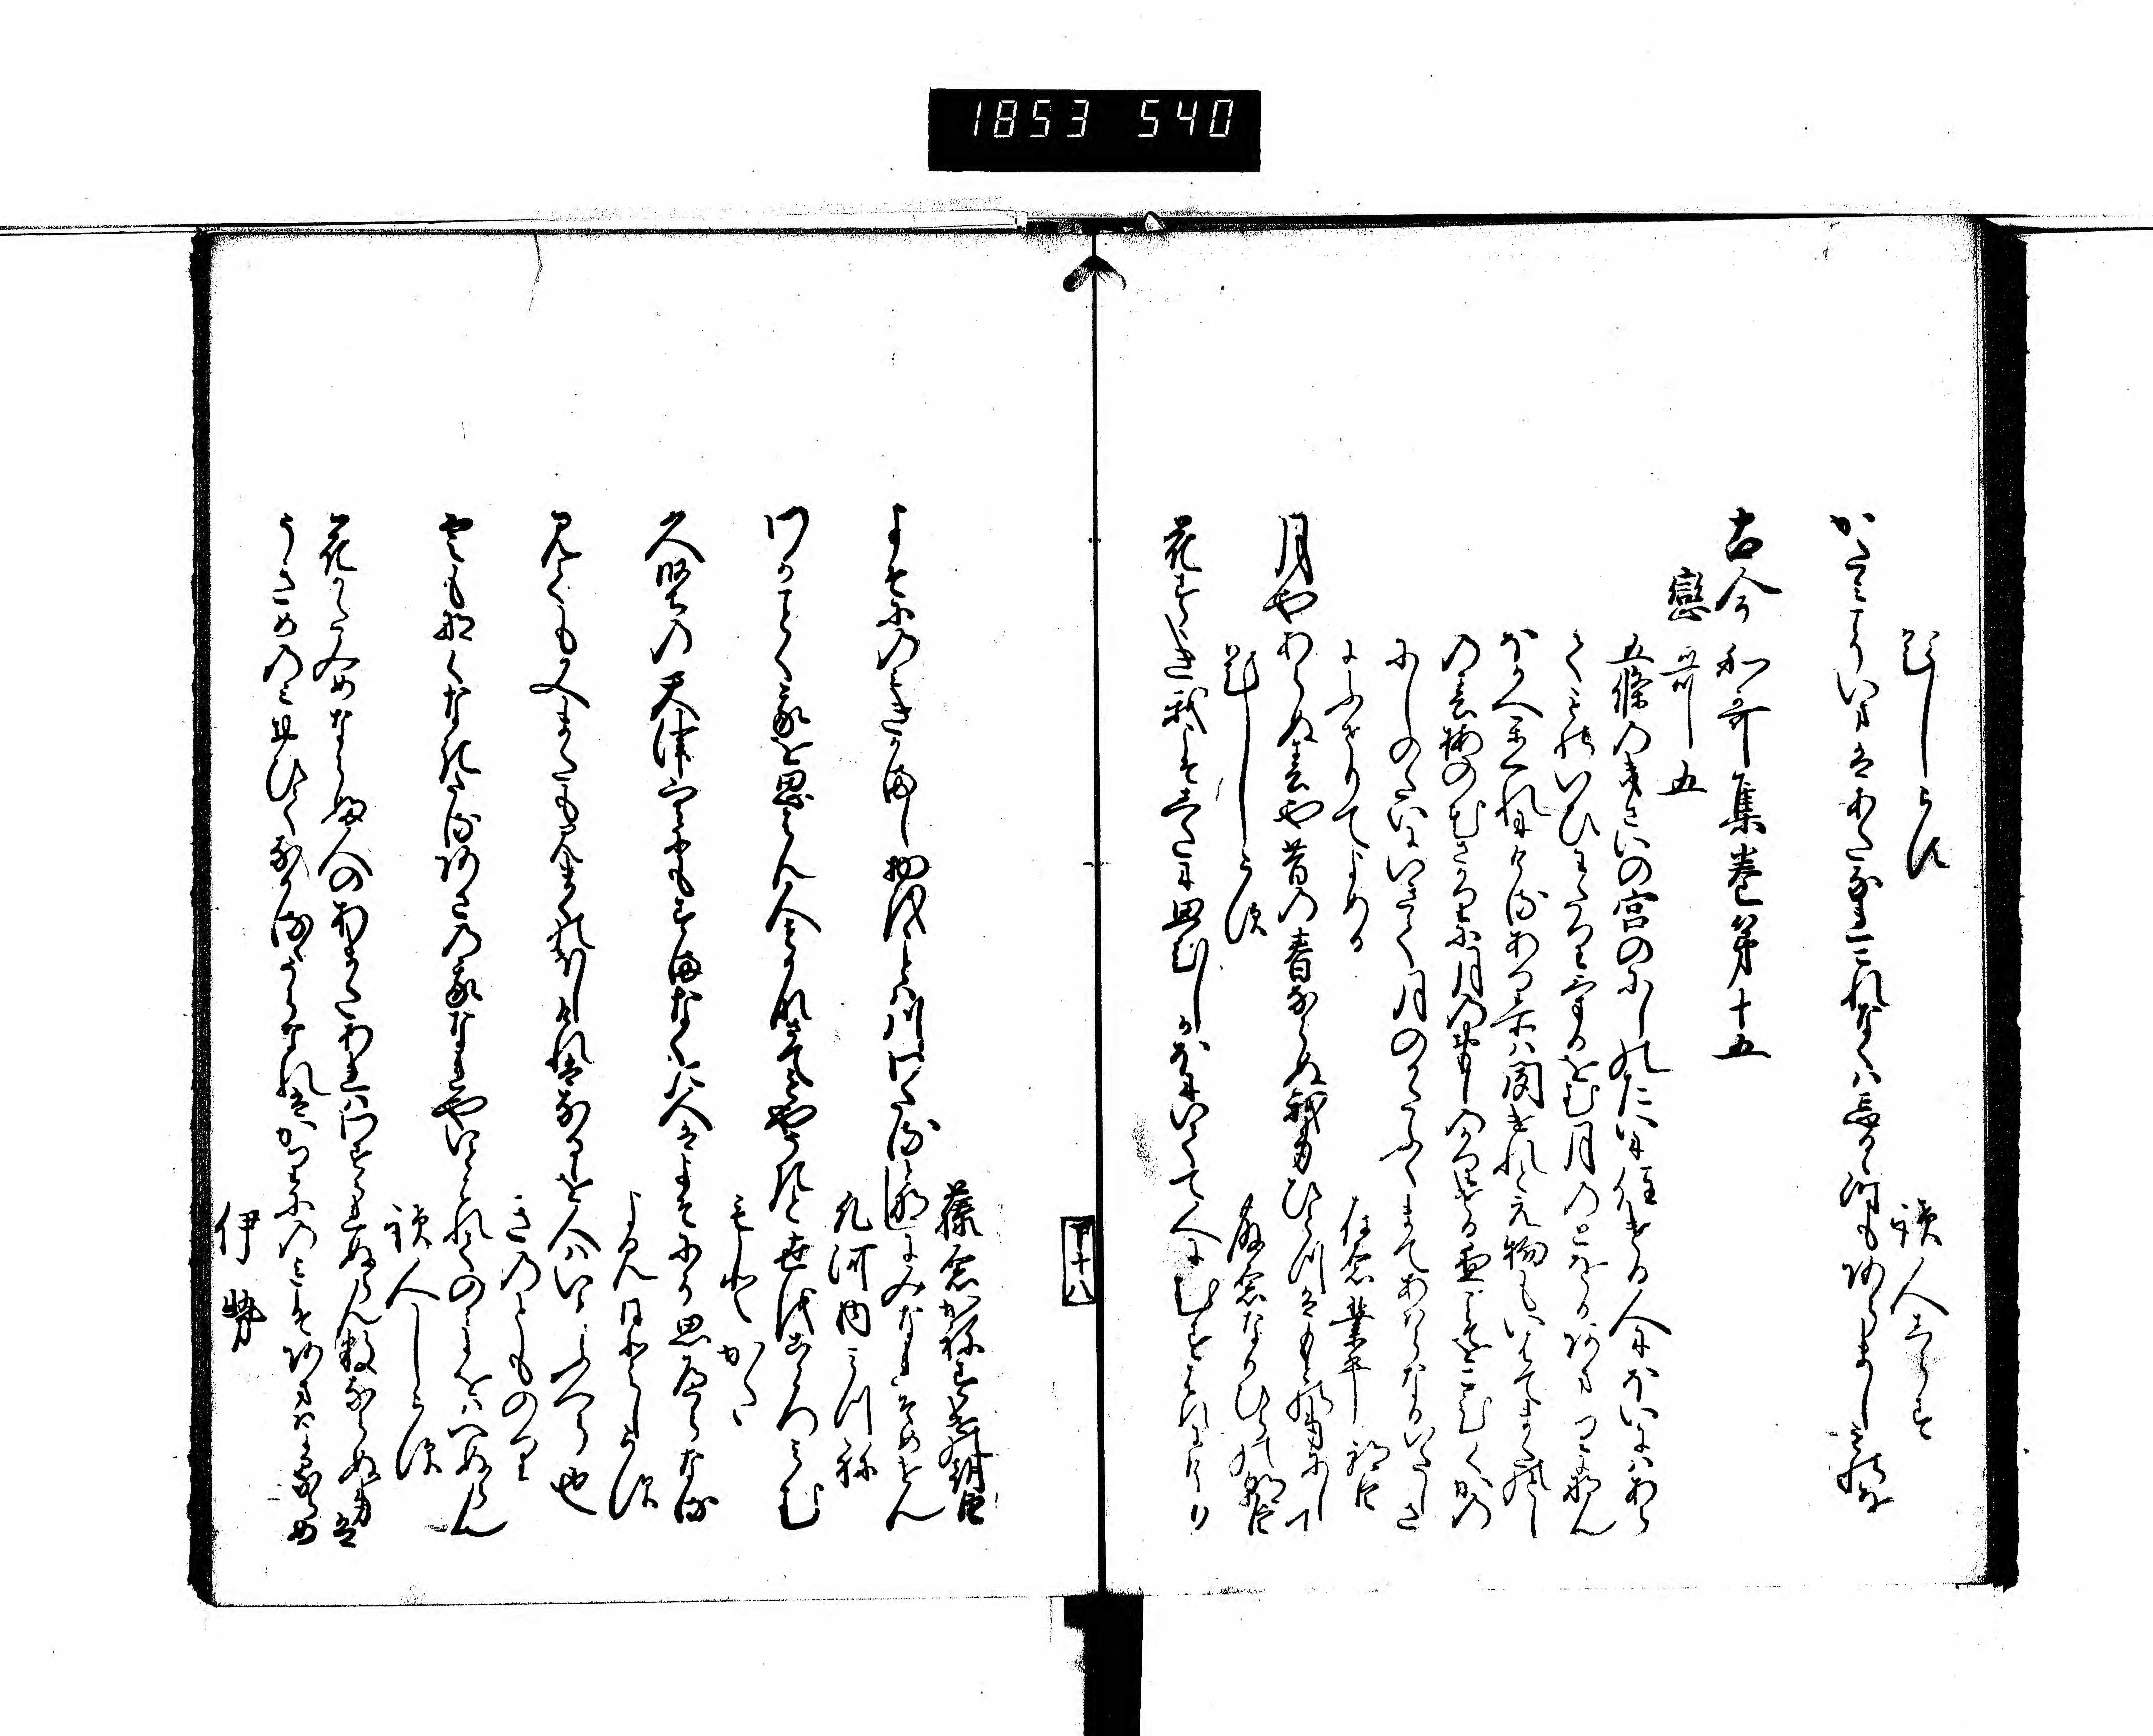 1853 540
題しらす 読人しらす
かたみこそいまはあたなれこれなくは忘るゝ時もあらまし物を
古今和哥集巻第十五
戀哥五
五條のきさいの宮のにしのたいに住ける人にほいにはあら
てものいひわたりけるをむ月のとをかあまりになん
ほかへかくれにけるあり所は聞けれとえ物もいはてまたのとし
の春梅の花さかりに月のおもしろかりける夜こそをこひてかの
にしのたいにいきて月のかたふくまてあはらなるいたしき
にふせりてよめる
在原業平朝臣
月やあらぬ春や昔の春ならぬ我身ひとつはもとの身にして
題しらす 藤原なかひらの朝臣
花すゝき我こそしたに思ひしかほにいてゝ人にむすはれにけり
下十八
藤原かねすけの朝臣
よそにのみきかまし物を音羽川わたるとなしにみなれそめけん
凡河内みつね
わかことく我を思はん人もかなさてもやうきと世を心みむ
もとかた
久堅の天津空にもすまなくに人はよそにそ思ふへらなる
よみ人しらす
見ても又またも見まくのほしけれはなるゝを人はいとふへら也
きのとものり
雲もなくなきたるあさの我なれやいとはれてのみ世をはへぬらん
読人しらす
花かたみめならふ人のあまたあれはわすられぬらん數ならぬ身は
うきめのみおひてなかるゝうらなれはかりにのみこそあまはよるらめ
伊勢